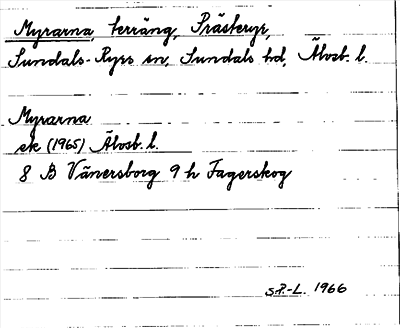 Myrarna, terräng, Prästeryr,
Sundals-Ryrs sn, Sundals hd, Älvsb. l.
Myrarna
ek (1965) Älvsb. l.
8 B Vänersborg 9 h Fagerskog
S.P.-L. 1966